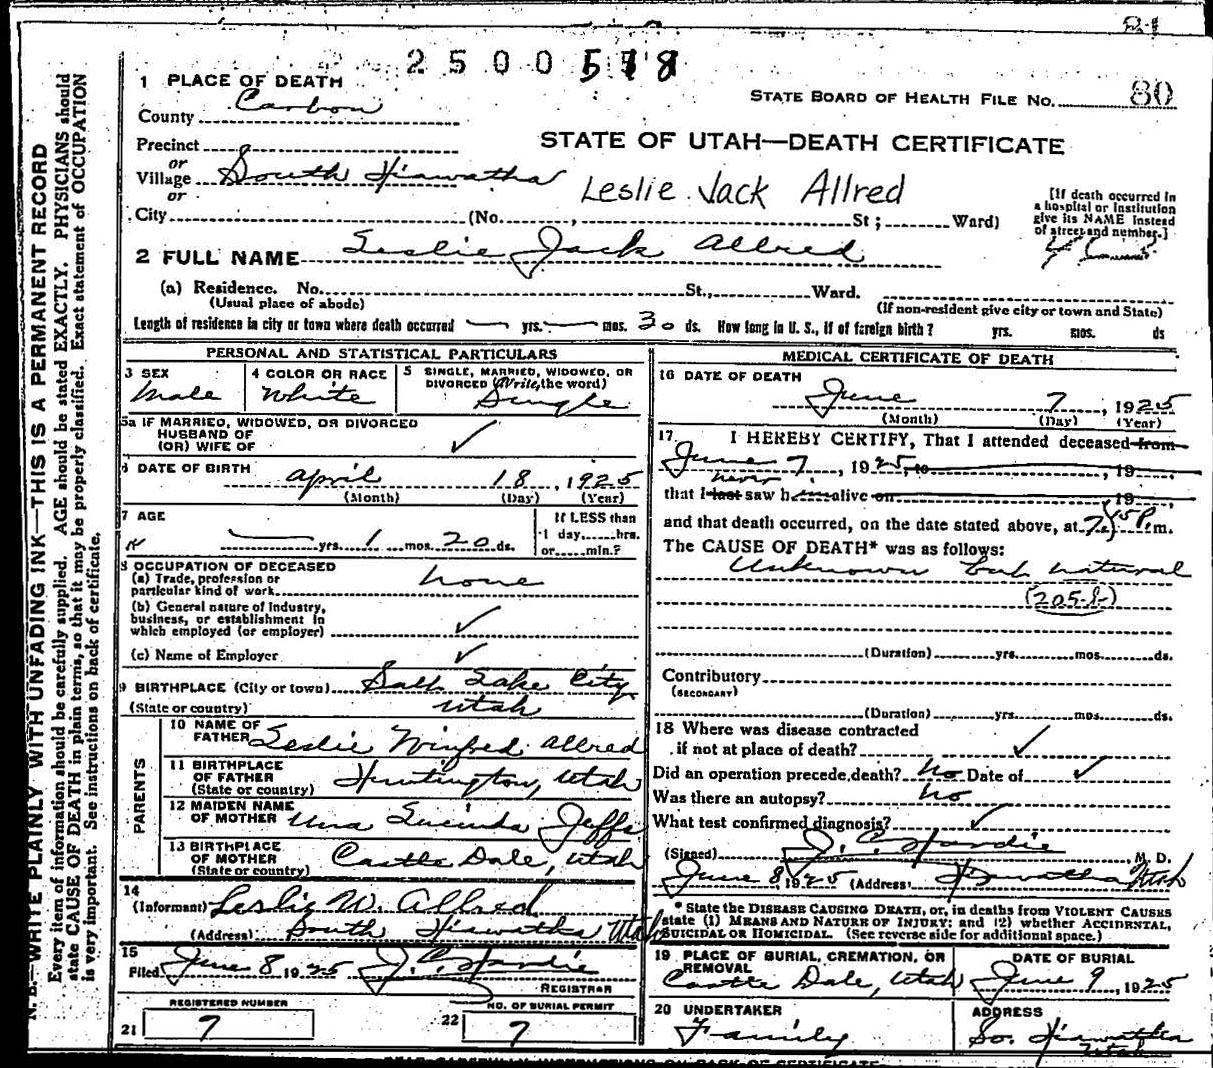 81
2500578
1 PLACE OF DEATH
STATE BOARD OF HEALTH FILE NO. 80
County Carbon
STATE OF UTAH—DEATH CERTIFICATE
Precinct
or
Village South Hiawatha
or
Leslie Jack Allred
City (No. , St; Ward)
[If death occurred in
a hospital or institution
give its NAME instead
of street and number.]
2 FULL NAME Leslie Jack Allred
(a) Residence. No. St., Ward.
(Usual place of abode)
(If non-resident give city or town and State)
Length of residence in city or town where death occurred — yrs. — mos. 30 ds. How long in U. S., if of foreign birth? yrs. mos. ds
PERSONAL AND STATISTICAL PARTICULARS
3 SEX
Male
4 COLOR OR RACE
White
5 SINGLE, MARRIED, WIDOWED, OR
DIVORCED (Write the word)
Single
5a IF MARRIED, WIDOWED, OR DIVORCED
HUSBAND OF
(OR) WIFE OF
6 DATE OF BIRTH April 18, 1925
(Month) (Day) (Year)
7 AGE
— yrs. 1 mos. 20 ds.
If LESS than
1 day, hrs.
or min.?
8 OCCUPATION OF DECEASED
(a) Trade, profession or
particular kind of work none
(b) General nature of Industry,
business, or establishment in
which employed (or employer)
(c) Name of Employer
9 BIRTHPLACE (City or town) Salt Lake City
(State or country) Utah
PARENTS
10 NAME OF
FATHER Leslie Winfred Allred
11 BIRTHPLACE
OF FATHER Huntington, Utah
(State or country)
12 MAIDEN NAME
OF MOTHER Una Lucinda Jeffs
13 BIRTHPLACE
OF MOTHER Castle Dale, Utah
(State or country)
14
(Informant) Leslie W. Allred
(Address) South Hiawatha Utah
15
Filed June 8, 1925 J. C. Hardie
REGISTRAR
REGISTERED NUMBER
21 7
NO. OF BURIAL PERMIT
22 7
MEDICAL CERTIFICATE OF DEATH
16 DATE OF DEATH
June 7, 1925
(Month) (Day) (Year)
17 I HEREBY CERTIFY, That I attended deceased from
June 7, 1925, to , 19
never
that I last saw h alive on 19
and that death occurred, on the date stated above, at 7:45 P m.
The CAUSE OF DEATH* was as follows:
Unknown but natural
(205-b)
(Duration) yrs. mos. ds.
Contributory
(SECONDARY)
(Duration) yrs. mos. ds.
18 Where was disease contracted
if not at place of death?
Did an operation precede death? No Date of
Was there an autopsy? No
What test confirmed diagnosis?
(Signed) J. C. Hardie, M. D.
June 8, 1925 (Address) Hiawatha Utah
* State the DISEASE CAUSING DEATH, or, in deaths from VIOLENT CAUSES
state (1) MEANS AND NATURE OF INJURY; and (2) whether ACCIDENTAL,
SUICIDAL OR HOMICIDAL. (See reverse side for additional space.)
19 PLACE OF BURIAL, CREMATION, OR
REMOVAL
Castle Dale, Utah
DATE OF BURIAL
June 9, 1925
20 UNDERTAKER
Family
ADDRESS
So. Hiawatha
Utah
N. B.—WRITE PLAINLY WITH UNFADING INK—THIS IS A PERMANENT RECORD
Every item of information should be carefully supplied. AGE should be stated EXACTLY. PHYSICIANS should
state CAUSE OF DEATH in plain terms, so that it may be properly classified. Exact statement of OCCUPATION
is very important. See instructions on back of certificate.